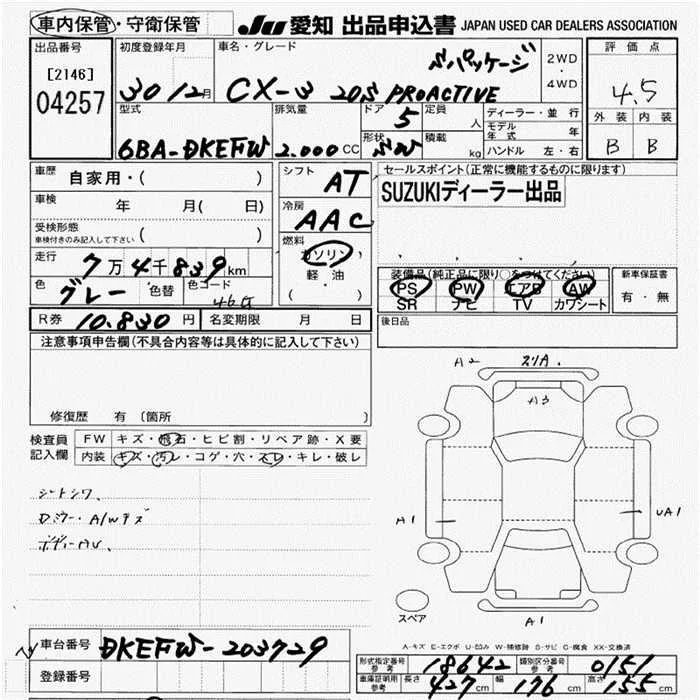 車内保管・守衛保管 JU 愛知 出品申込書 JAPAN USED CAR DEALERS ASSOCIATION
出品番号
[2146]
04257
初度登録年月
30 12月
車名・グレード
Sパッケージ
CX-3 20S PROACTIVE
2WD
・
4WD
評価点
4.5
外装 内装
B B
型式
6BA-DKEFW
排気量
2.000 CC
ドア 5
形状 SW
定員 人
積載 kg
ディーラー・並行
モデル年式 年
ハンドル 左・右
車歴 自家用・( )
車検 年 月( 日)
受検形態
車検付きのみ記入して下さい ( )
走行 7万4千839km
色 グレー 色替 色コード 46G
シフト AT
冷房 AAC
燃料 ガソリン
・
軽油
( ・ )
セールスポイント(正常に機能するものに限ります)
SUZUKIディーラー出品
装備品(純正品に限り○をつけてください)
PS PW エアB AW
SR ナビ TV カワシート
新車保証書
有・無
R券 10.830円 名変期限 月 日
後日品
注意事項申告欄(不具合内容等は具体的に記入して下さい)
修復歴 有 〔箇所 〕
検査員記入欄
FW キズ・飛石・ヒビ割・リペア跡・X要
内装 キズ・汚レ・コゲ・穴・スレ・キレ・破レ
シートシワ、
Dミラー・A/Wキズ
ボディーAU、
A2
A3
A1
UA1
A1
スペア
A-キズ E-エクボ U-凹み W-補修跡 S-サビ C-腐食 XX-交換済
車台番号 DKEFW-203729
登録番号
形式指定番号 参考 18642 類別区分番号 参考 0151
車庫証明用 参考 長さ 427cm 幅 176cm 高さ 155cm